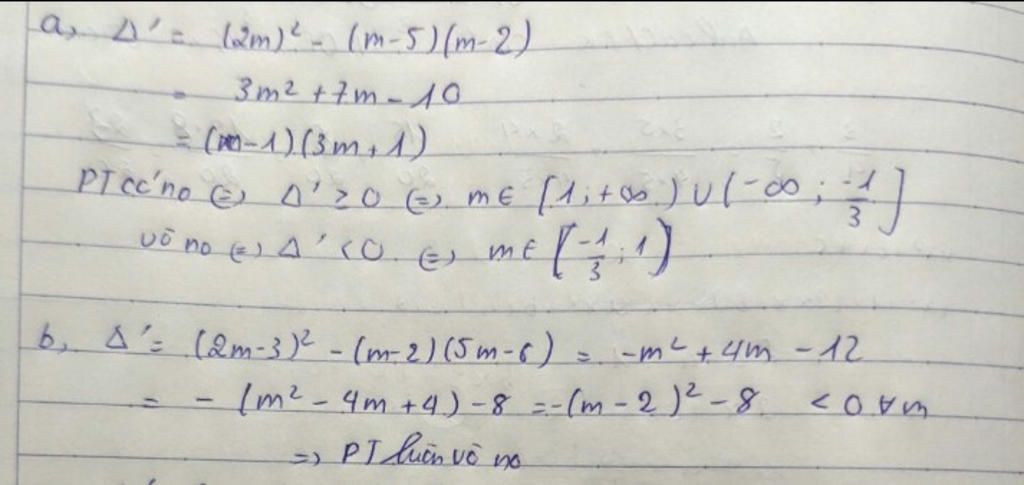 a, Δ' = (2m)² - (m-5)(m-2)
= 3m² + 7m - 10
= (m-1)(3m+1)
PT có no ⇔ Δ' ≥ 0 ⇔ m ∈ [1; +∞) ∪ (-∞; -1/3]
vô no ⇔ Δ' < 0 ⇔ m ∈ [-1/3; 1)
b, Δ' = (2m-3)² - (m-2)(5m-6) = -m² + 4m - 12
= - (m² - 4m + 4) - 8 = -(m-2)² - 8 < 0 ∀m
=> PT luôn vô no